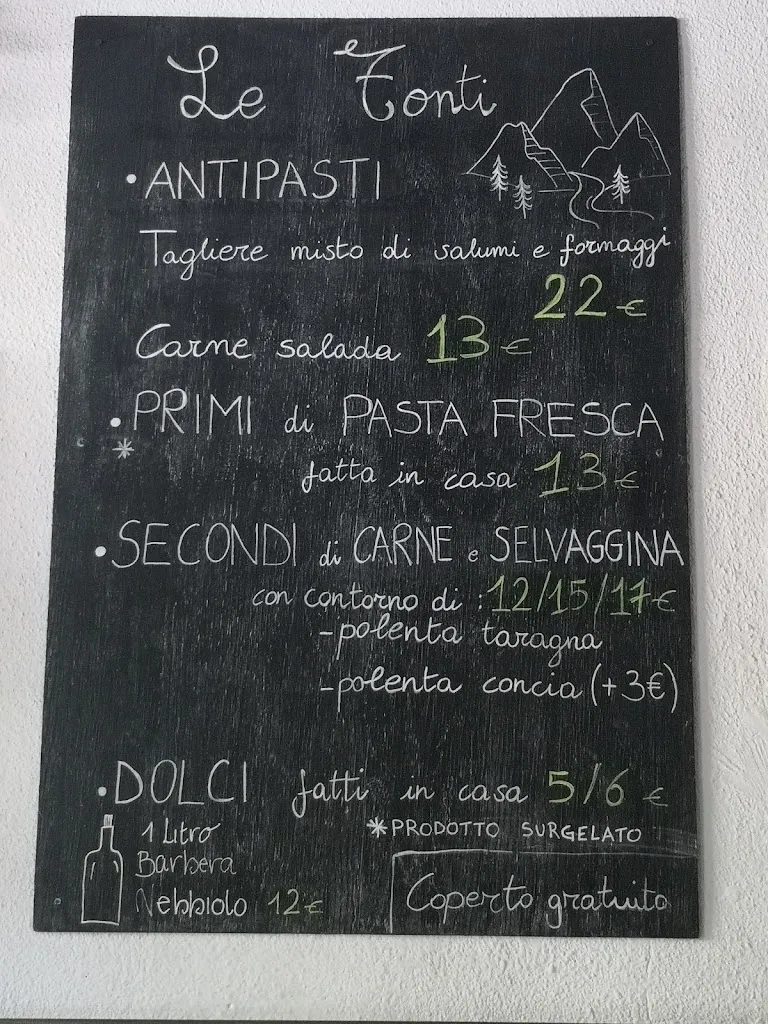 Le Fonti
• ANTIPASTI
Tagliere misto di salumi e formaggi
22 €
Carne salada 13 €
• PRIMI di PASTA FRESCA
* fatta in casa 13 €
• SECONDI di CARNE e SELVAGGINA
con contorno di : 12/15/17 €
- polenta taragna
- polenta concia (+3€)
• DOLCI fatti in casa 5/6 €
* PRODOTTO SURGELATO
1 Litro
Barbera
Nebbiolo 12 €
Coperto gratuito